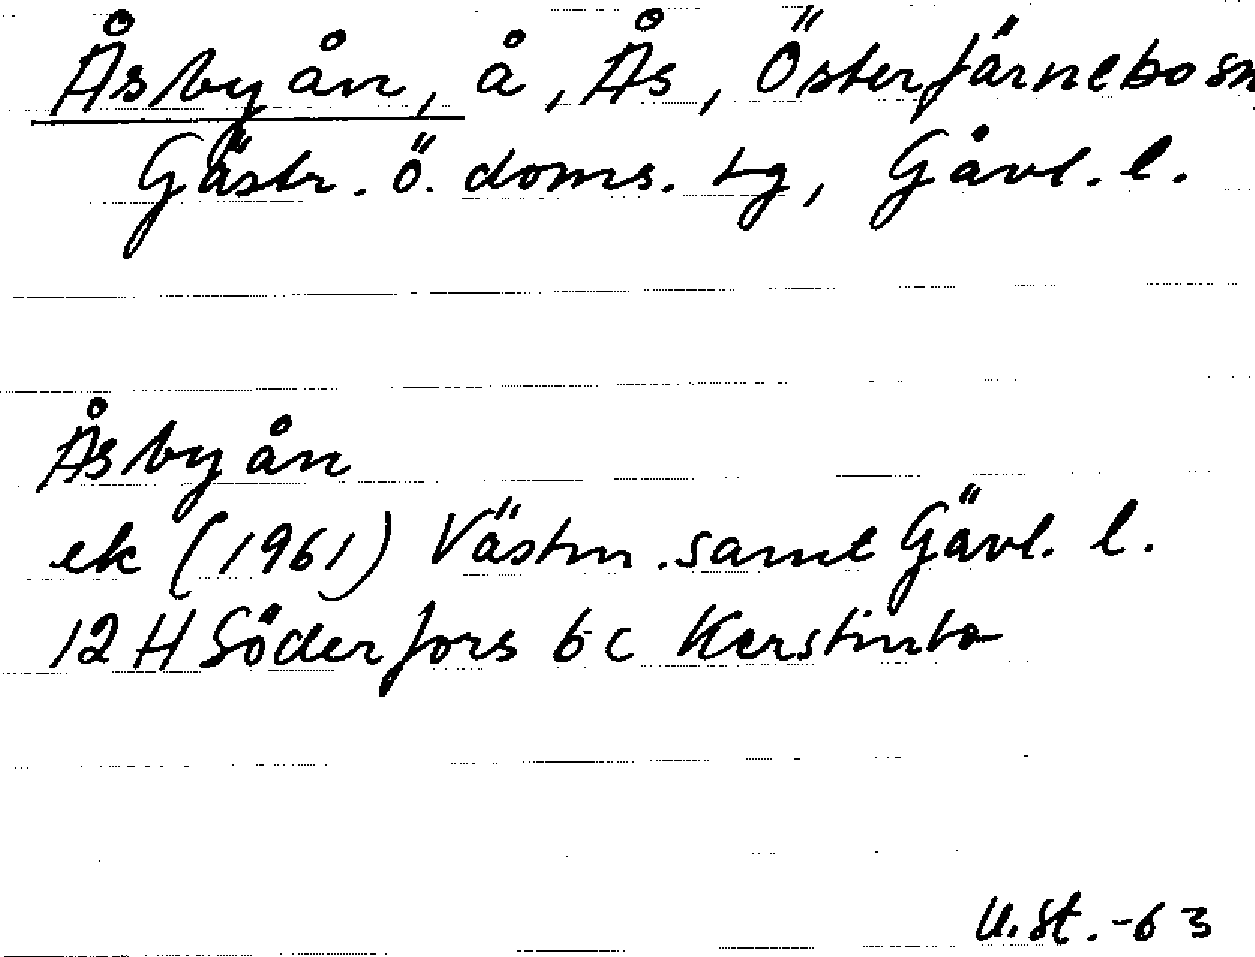 Åsbyån, å, Ås, Österfärnebo sn
Gästr. ö. doms. tg, Gävl. l.
Åsbyån
ek (1961) Västm. samt Gävl. l.
12 H Söderfors 6 c Kerstinbo
U.St.-63